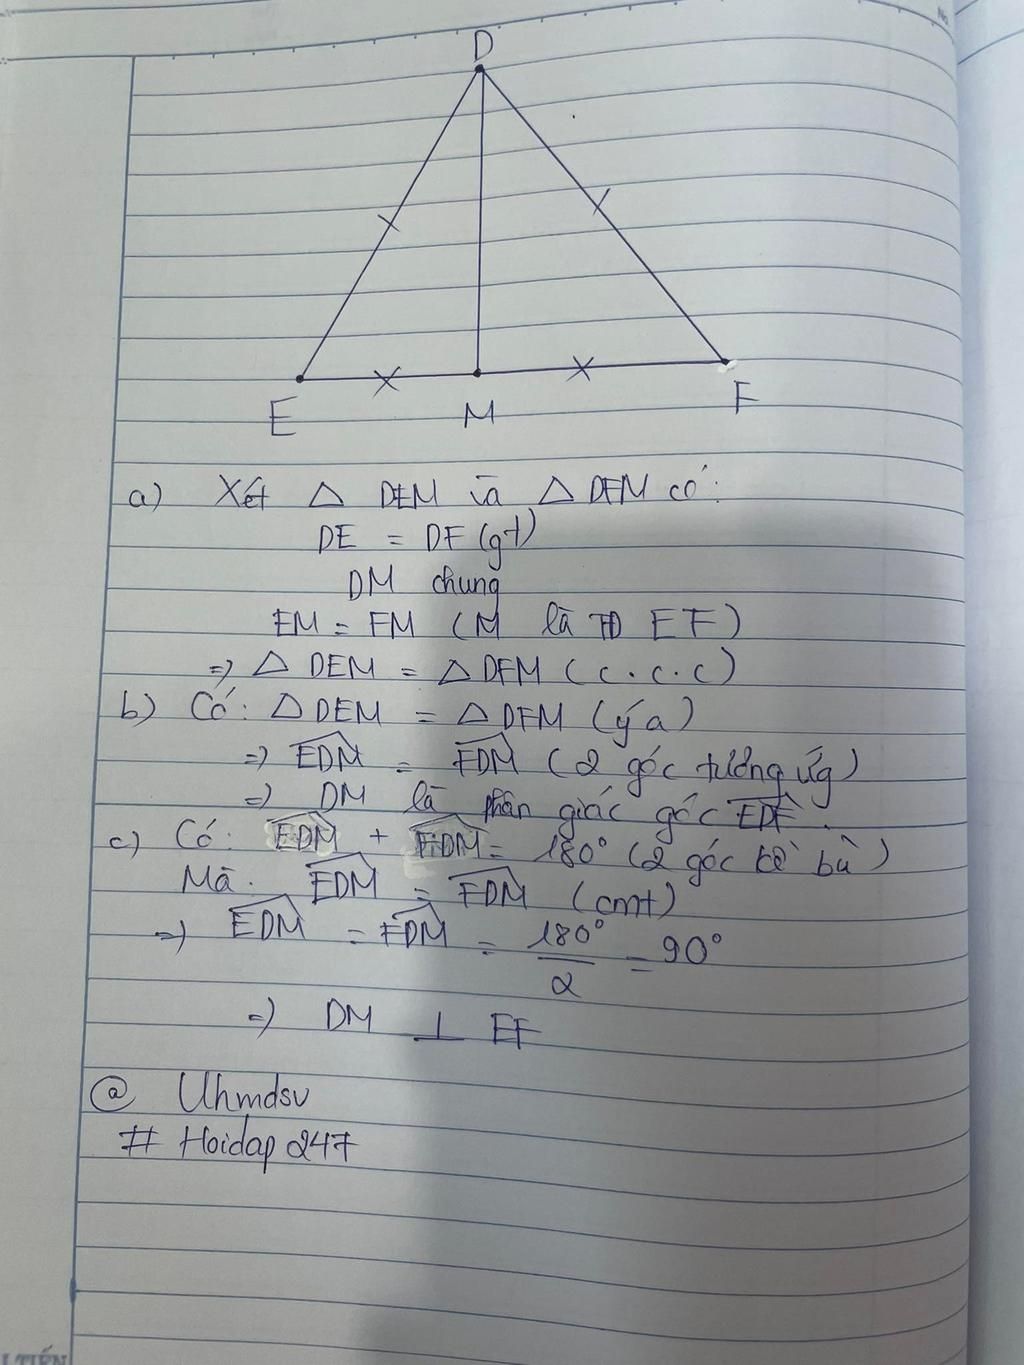 D
E M F
a) Xét △ DEM và △ DFM có:
DE = DF (gt)
DM chung
EM = FM (M là TĐ EF)
=) △ DEM = △ DFM (c.c.c)
b) Có: △ DEM = △ DFM (ý a)
=) \widehat{EDM} = \widehat{FDM} (2 góc tưởng ứg)
=) DM là phân giác góc \widehat{EDF}.
c) Có: \widehat{EDM} + \widehat{FDM} = 180° (2 góc kề bù)
Mà: \widehat{EDM} = \widehat{FDM} (cmt)
=) \widehat{EDM} = \widehat{FDM} = \frac{180°}{2} = 90°
=) DM ⊥ EF
@ Uhmdsv
# Hoidap 247